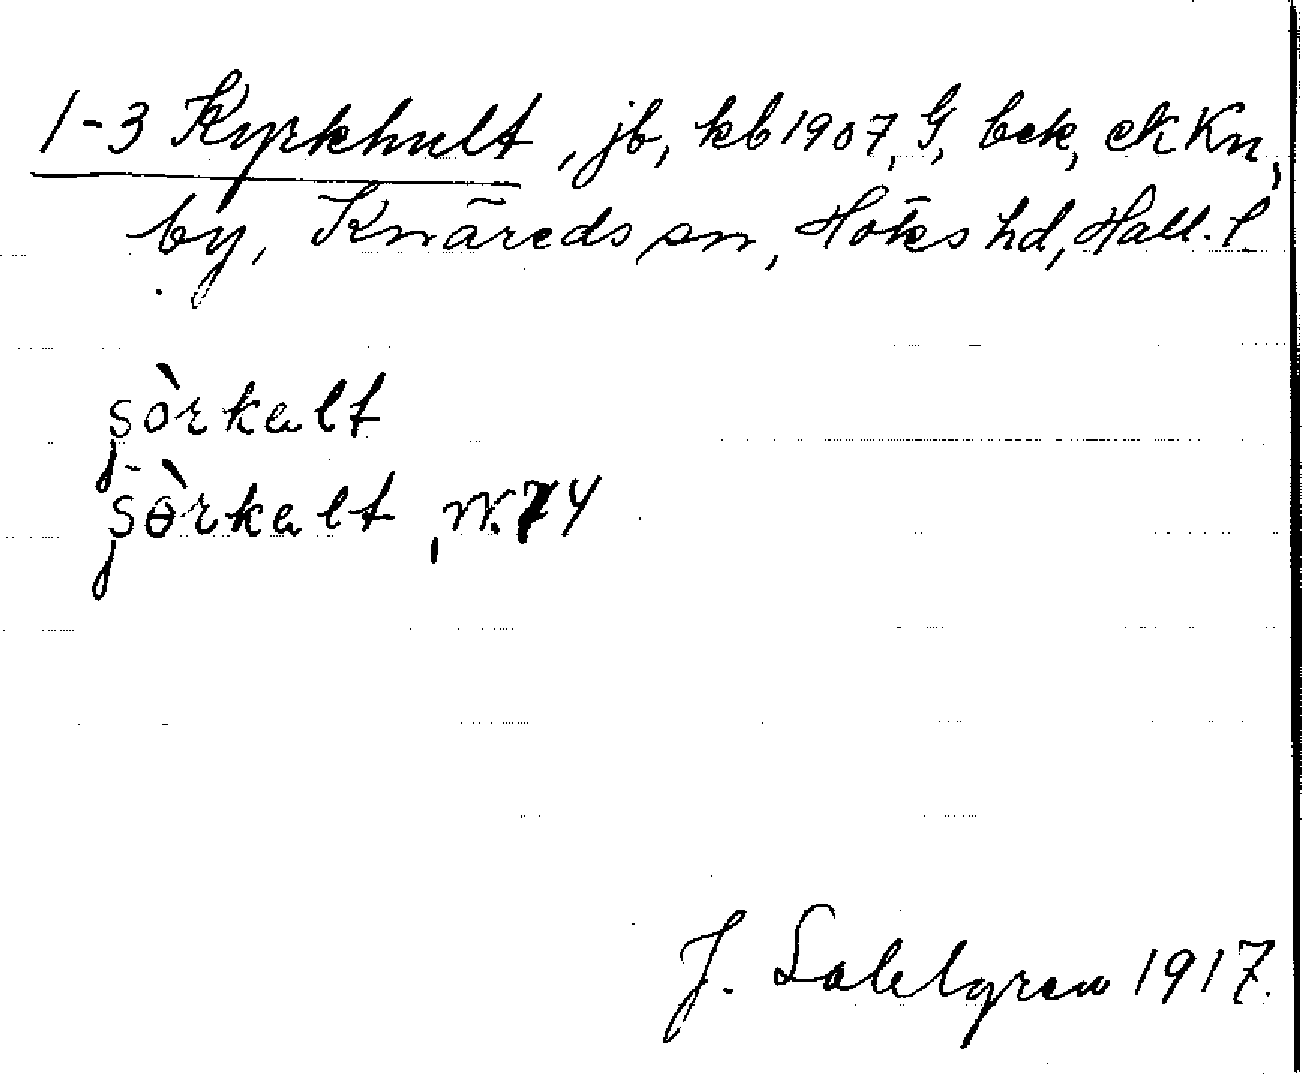 1-3 Kyrkhult, jb, kb 1907, G, bek, ek Kn,
by, Knäreds sn, Höks hd, Hall. l
şò̀rkalt
şɵ̀rkalt, N. 74
J. Sahlgren 1917.